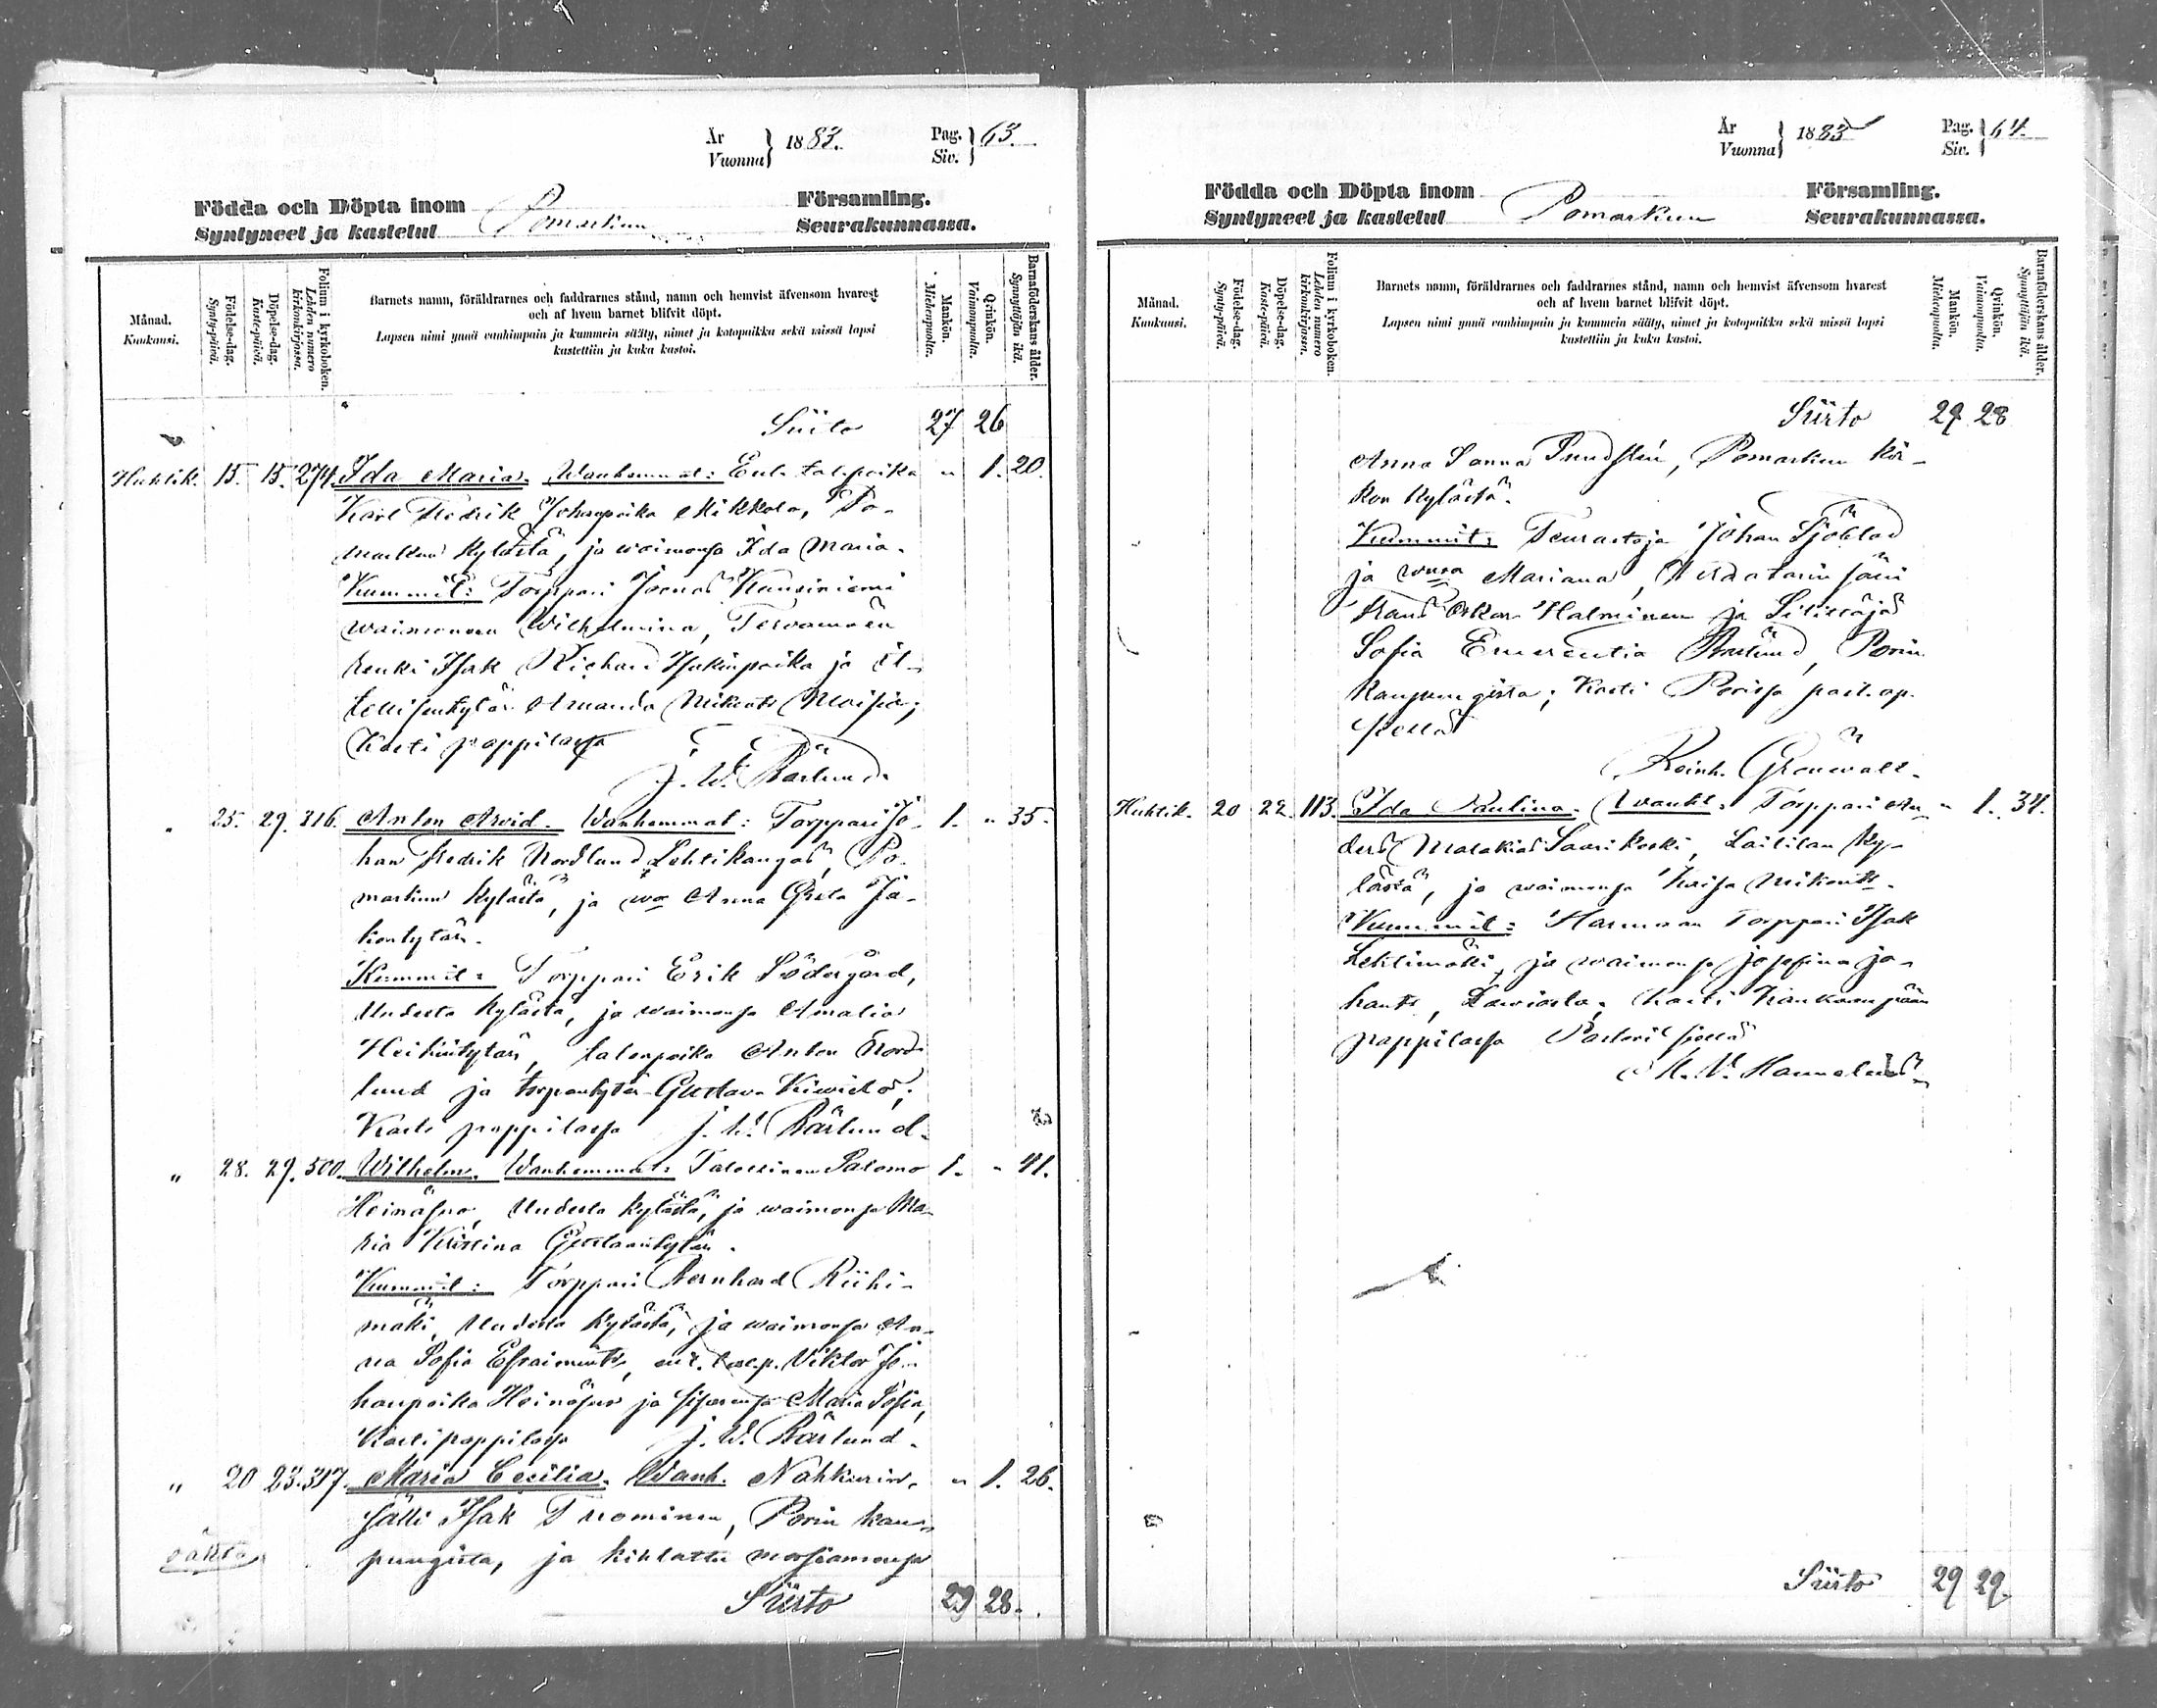 År
Vuonna } 1883.
Pag.
Siv. } 63.
Födda och Döpta inom
Syntyneet ja kastetut
Pomarkun
Församling.
Seurakunnassa.
Månad.
Kuukausi.
Födelse-dag.
Synty-päivä.
Döpelse-dag.
Kaste-päivä.
Folium i kyrkoboken.
Lehden numero
kirkonkirjassa.
Barnets namn, föräldrarnes och faddrarnes stånd, namn och hemvist äfvensom hvarest
och af hvem barnet blifvit döpt.
Lapsen nimi ynnä vanhimpain ja kummein sääty, nimet ja kotopaikka sekä missä lapsi
kastettiin ja kuka kastoi.
Mankön.
Miehenpuolta.
Qvinkön.
Vaimonpuolta.
Barnaföderskans ålder.
Synnyttäjän ikä.
Siirto 27 26
Huhtik. 15. 15. 274. Ida Maria. Wanhemmat: Ent. talpoika " 1. 20.
Karl Fredrik Johanpoika Mikkola, Po-
markun kylästä, ja waimonsa Ida Maria.
Kummit: Torppari Joonas
waimonsa Wilhelmina,
renki Isak Richard Isakinpoika ja it-
Amanda Mikonts
Kasti pappilassa
J. W. Bärlund.
" 25. 29. 316. Anton Arvid. Wanhemmat: Torppari Jo- 1. " 35.
han Fredrik Nordlund Lehtikangas, Po-
markun kylästä, ja wa Anna Greta Ja-
kontytär.
Kummit: Torppari Erik Södergård,
Uudesta kylästä, ja waimonsa Amalia
Heikintytär, talonpoika Anton Nord-
lund ja torpantytär Gustava
Kasti pappilassa J. W. Bärlund.
" 28. 29. 500. Wilhelm. Wanhemmat: Talollinen Salomo 1. " 41.
Heinäsuo, Uudesta kylästä, ja waimonsa Ma-
ria Kristina Gustaantytär.
Kummit: Torppari Bernhard Riihi-
mäki, Uudesta kylästä, ja waimonsa An-
na Sofia Efraiminte, ent. tal.p. Viktor Jo-
hanpoika Heinäsuo ja sisarensa Maria Sofia,
Kasti pappilassa J. W. Bärlund.
" 20 23. 317. Maria Cecilia. Wanh. Nahkurin- " 1. 26.
sälli Isak Tuominen, Porin kau-
pungista, ja kihlattu morsiamensa
Siirto 29 28.
År
Vuonna } 1883
Pag.
Siv. } 64.
Födda och Döpta inom
Syntyneet ja kastetut
Pomarkun
Församling.
Seurakunnassa.
Månad.
Kuukausi.
Födelse-dag.
Synty-päivä.
Döpelse-dag.
Kaste-päivä.
Folium i kyrkoboken.
Lehden numero
kirkonkirjassa.
Barnets namn, föräldrarnes och faddrarnes stånd, namn och hemvist äfvensom hvarest
och af hvem barnet blifvit döpt.
Lapsen nimi ynnä vanhimpain ja kummein sääty, nimet ja kotopaikka sekä missä lapsi
kastettiin ja kuka kastoi.
Mankön.
Miehenpuolta.
Qvinkön.
Vaimonpuolta.
Barnaföderskans ålder.
Synnyttäjän ikä.
Siirto 29 28
Anna Sanna Pomarkun kir-
kon kylästä.
Kummit: Teurastaja Johan Sjöblad
ja Mariana,
Oskar Halminen ja Silittäjä
Sofia Emerentia Porin
kaupungista; Kasti Porissa past. ap.
siellä
Reinh. Grönwall.
Huhtik. 20 22. 113. Ida Paulina. Wanht: Torppari An- " 1. 34.
ders Malakias Saarikoski, Laitilan ky-
lästä, ja waimonsa Kaisa Mikontr.
Kummit: Harmaan Torppari Isak
Lehtimäki, ja waimonsa Josefina Jo-
hantr, Lawiasta, Kasti Kankaanpään
pappilassa Pastori siellä
K. V. Hannelius.
Siirto 29 29.